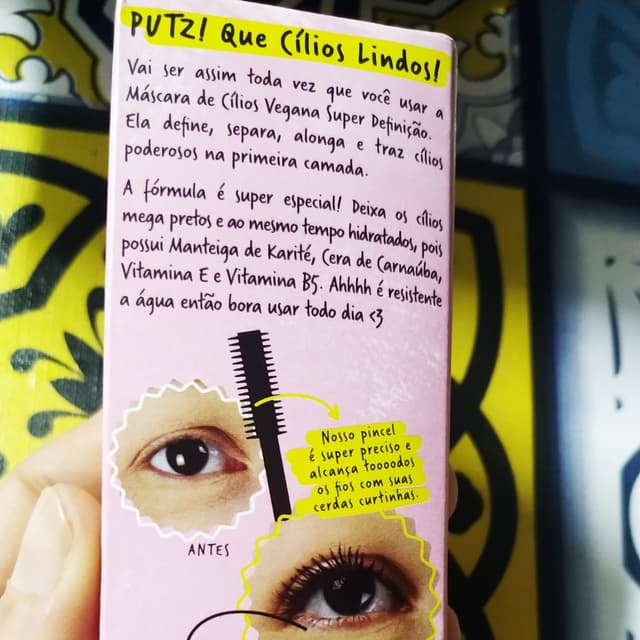 PUTZ! Que Cílios Lindos!
Vai ser assim toda vez que você usar a
Máscara de Cílios Vegana Super Definição.
Ela define, separa, alonga e traz cílios
poderosos na primeira camada.
A fórmula é super especial! Deixa os cílios
mega pretos e ao mesmo tempo hidratados, pois
possui Manteiga de Karité, Cera de Carnaúba,
Vitamina E e Vitamina B5. Ahhhh é resistente
a água então bora usar todo dia <3
Nosso pincel
é super preciso e
alcança toooodos
os fios com suas
cerdas curtinhas.
ANTES